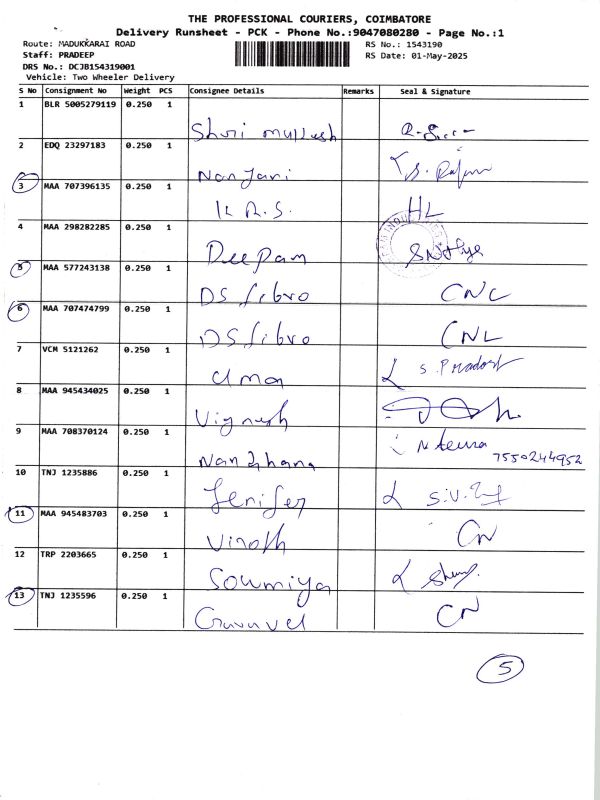 THE PROFESSIONAL COURIERS, COIMBATORE
Delivery Runsheet - PCK - Phone No.:9047080280 - Page No.:1
Route: MADUKKARAI ROAD RS No.: 1543190
Staff: PRADEEP RS Date: 01-May-2025
DRS No.: DCJB154319001
Vehicle: Two Wheeler Delivery
S No Consignment No Weight PCS Consignee Details Remarks Seal & Signature
1 BLR 5005279119 0.250 1
Shri
2 EDQ 23297183 0.250 1
Nanjani
3 MAA 707396135 0.250 1
K.R.S. HL
4 MAA 298282285 0.250 1
Deepam
5 MAA 577243138 0.250 1
DS fibro CNC
6 MAA 707474799 0.250 1
DS fibro CNL
7 VCM 5121262 0.250 1
Uma S. Pradeep
8 MAA 945434025 0.250 1
Vignesh
9 MAA 708370124 0.250 1
Nandhana 7550244952
10 TNJ 1235886 0.250 1
Jenifer S.V.
11 MAA 945483703 0.250 1
Vinoth CN
12 TRP 2203665 0.250 1
Sowmiya
13 TNJ 1235596 0.250 1
CN
5